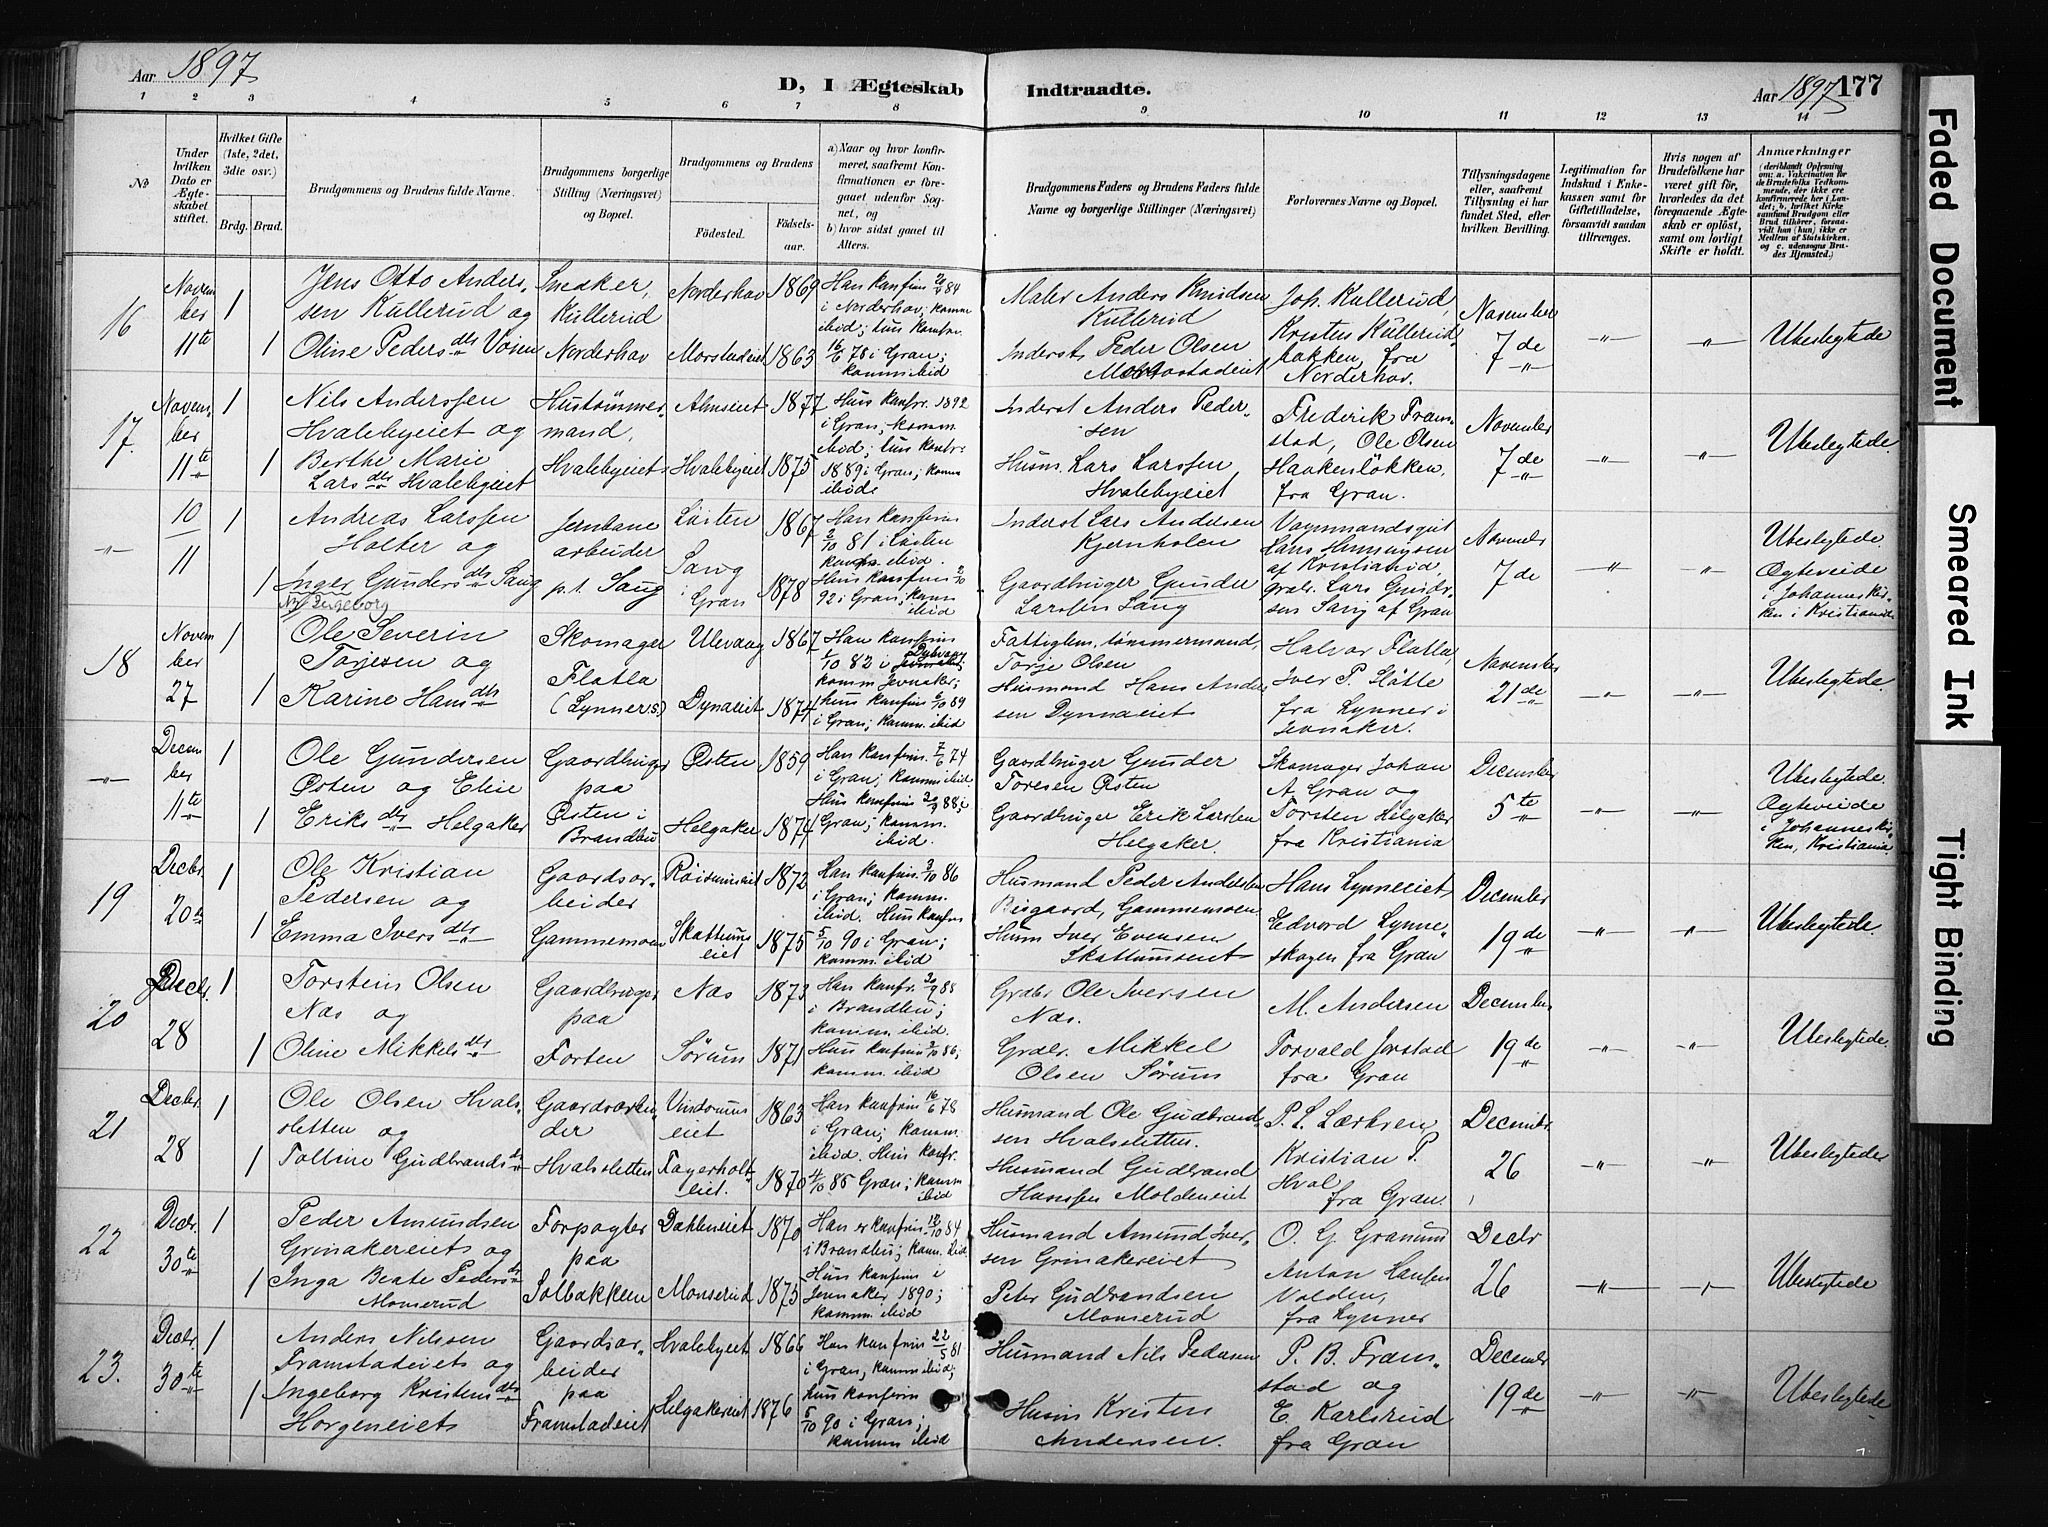 Aar 1897
D, I Ægteskab Indtraadte.
Aar 1897 177
1 2 3 4 5 6 7 8 9 10 11 12 13 14
No
Under hvilken Dato er Ægteskabet stiftet.
Hvilket Gifte (1ste, 2det, 3die osv.)
Brdg. Brud.
Brudgommens og Brudens fulde Navne.
Brudgommens borgerlige Stilling (Næringsvei) og Bopæl.
Brudgommens og Brudens
Födested. Födselsaar.
a) Naar og hvor konfirmeret, saafremt Konfirmationen er foregaaet udenfor Sognet, og
b) hvor sidst gaaet til Alters.
Brudgommens Faders og Brudens Faders fulde Navne og borgerlige Stillinger (Næringsvei)
Forlovernes Navne og Bopæl.
Tillysningsdagene eller, saafremt Tillysning ei har fundet Sted, efter hvilken Bevilling.
Legitimation for Indskud i Enkekassen samt for Giftetilladelse, forsaavidt saadan tiltrænges.
Hvis nogen af Brudefolkene har været gift för, hvorledes da det foregaaende Ægteskab er oplöst, samt om lovligt Skifte er holdt.
Anmærkninger
16 November 11te 1 1
Jens Otto Anderssen Kullerud og
Oline Pedersdtr Vøien
Snekker, Kullerud Norderhov
Norderhov 1869
Morstadeiet 1863
Han konfirm. 84 i Norderhov; komm. ibid; hun konfirm. 16/6 78 i Gran; komm ibid
Maler Anders Knudsen Kullerud
Inderst Peder Olsen Morstadeiet
Joh. Kullerud, Kristen Kullerudbakken, fra Norderhov.
November 7de
" "
Ubeslegtede
17. November 11te 1 1
Nils Anderssen Hvalebyeiet og
Berthe Marie Larsdtr Hvalebyeiet
Hustømmermand, Hvalebyeiet
Almseiet 1877
Hvalebyeiet 1875
Han konfr. 1892 i Gran; komm. ibid; hun konfr. 1889 i Gran; komm ibid
Inderst Anders Pedersen
Husm. Lars Larssen Hvalebyeiet
Frederik Framstad, Ole Olsen Haakenløkken, fra Gran.
November 7de
" "
Ubeslegtede.
" 10/11 1 1
Andreas Larssen Holter og
Inger Gundersdtr Sang
Ingeborg
Jernbanearbeider p.t. Sang
Løiten 1867
Sang i Gran 1878
Han konfirm 2/10 81 i Løiten komm. ibid. Hun konfirm 2/10 92 i Gran; komm ibid
Inderst Lars Andersen Kjernholen
Gaardbruger Gunder Larsen Sang
Vognmandsgut Hans Henningsen af Kristiania, grdbr. Lars Gundersen Sang af Gran
November 7de
" "
Ubeslegtede.
Ægteviede i Johanneskirken i Kristiania
18 November 27 1 1
Ole Severin Torjesen og
Karine Hansdtr
Skomager Flatla (Lynners)
Ulevang 1867
Dynaeiet 1874
Han konfirm 1/10 82 i Dybvaag; komm Jevnaker; hun konfirm 6/10 89 i Gran; komm. ibid
Fattiglem, tømmermand, Torje Olsen
Husmand Hans Andersen Dynnaeiet
Halvor Flatla, Iver P. Slåtte fra Lynner i Jevnaker.
November 21de
" "
Ubeslegtede.
" December 11te 1 1
Ole Gundersen Østen og Eline
Eriksdtr Helgaker
Gaardbruger paa Østen i Brandbu
Østen 1859
Helgaker 1874
Han konfirm. 7/6 74 i Gran; komm. ibid. Hun konfirm 88 i Gran; komm. ibid.
Gaardbruger Gunder Toresen Østen
Gaardbruger Erik Larsen Helgaker.
Skomager Johan A. Gran og Torsten Helgaker fra Kristiania
December 5te
" "
Ubeslegtede.
Ægteviede i Johanneskirken, Kristiania
19 Decbr. 20de 1 1
Ole Kristian Pedersen og
Emma Iversdtr
Gaardsarbeider Gammemoen
Røisumeiet 1872
Skattumseiet 1875
Han konfirm. 3/10 86 i Gran; komm. ibid. Hun konfirm 5/10 90 i Gran; komm. ibid
Husmand Peder Andersen Bisgaard, Gammemoen
Husm Iver Evensen Skattumseiet
Hans Lynneeiet, Edvard Lynneskogen fra Gran
December 19de
" "
Ubeslegtede.
20 Decbr. 28 1 1
Torstein Olsen Næs og
Oline Mikkelsdtr
Gaardbruger paa Forten
Næs 1873
Sørum 1871
Han konfr. 30/9 88 i Brandbu; komm. ibid. Hun konfirm 3/10 86, komm. ibid
Grdbr Ole Iversen Næs.
Grdbr. Mikkel Olsen Sørum
M. Andersen Torvald Jorstad fra Gran
December 19de
" "
Ubeslegtede.
21 Decbr. 28 1 1
Ole Olsen Hvalsletten og
Polline Gudbrandsdtr
Gaardsarbeider Hvalsletten
Vindorumseiet 1863
Fagerholteiet. 1870
Han konfirm 16/6 78 i Gran; komm. ibid. Hun konfr. 4/10 85 Gran; komm ibid
Husmand Ole Gudbrandsen Hvalsletten.
Husmand Gudbrand Hanssen Moldeneiet
P. L. Lærken, Kristian P. Hval fra Gran.
Decembr 26
" "
Ubeslegtede
22 Decbr. 30te 1 1
Peder Amundsen Grinakereiets og
Inga Beate Pedersdtr Monserud
Forpagter paa Solbakken
Dahleneiet 1870
Monserud 1875
Han er konfirm. 12/10 84 i Brandbu; komm. ibid. Hun konfirm i Jevnaker 1890; komm. ibid
Husmand Amund Iversen Grinakereiet
Peter Gudbrandsen Monserud
O. G. Granum Anton Hansen Volden, fra Lynner
Decbr 26
" "
Ubeslegtede
23. Decbr. 30te 1 1
Anders Nilssen Framstadeiets og
Ingeborg Kristensdtr Horgeneiets
Gaardsarbeider paa Framstadeiet
Hvalebyeiet 1866
Helgakereiet 1876
Han konfirm 22/5 81 i Gran, komm. ibid; hun konfirm 5/10 90 i Gran; komm ibid
Husmand Nils Pedersen
Husm Kristen Andersen.
P. B. Framstad og E. Karlsrud fra Gran
Decembr 19de
" "
Ubeslegtede
Faded Document
Smeared Ink
Tight Binding